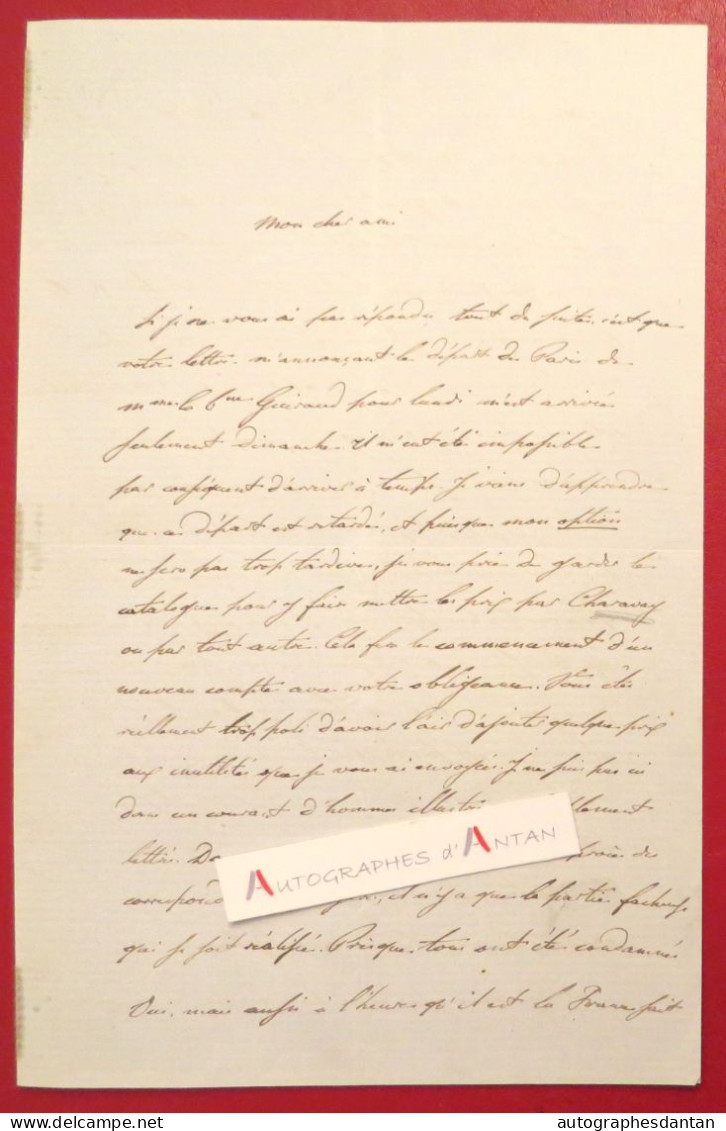 Mon cher ami
Si je ne vous ai pas répondu tout de suite, c'est que
votre lettre m'annonçant le départ de Paris de
Mme la Bne Guiraud pour lundi m'est arrivée
seulement dimanche. Il m'eut été impossible
par conséquent d'arriver à temps. Je viens d'apprendre
que ce départ est retardé, et puisque mon option
ne sera pas trop tardive, je vous prie de garder le
catalogue pour y faire mettre les prix par Charavay
ou par tout autre. Cela fera le commencement d'un
nouveau compte avec votre obligeance. Vous êtes
réellement trop poli d'avoir l'air d'ajouter quelque prix
aux inutilités que je vous ai envoyées. Je ne suis pas ici
dans un courant d'hommes illustres
lettrés. De
AUTOGRAPHES d'ANTAN
correspond il n'y a que la partie fâcheuse
qui se soit réalisée. Presque tous ont été condamnés
Oui, mais aussi à l'heure qu'il est la France fait
autographesdantan